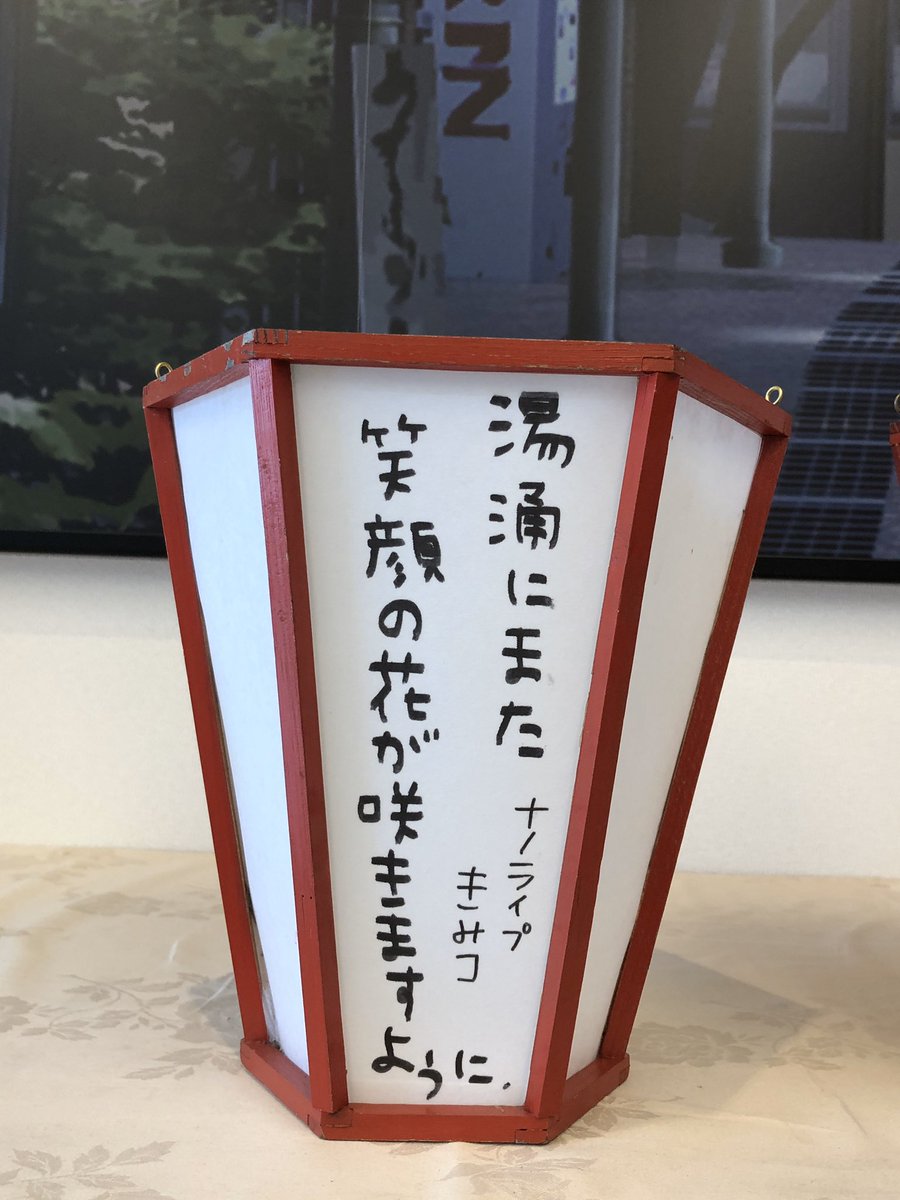 湯涌にまた
ナノライプ
きみコ
笑顔の花が咲きますように.